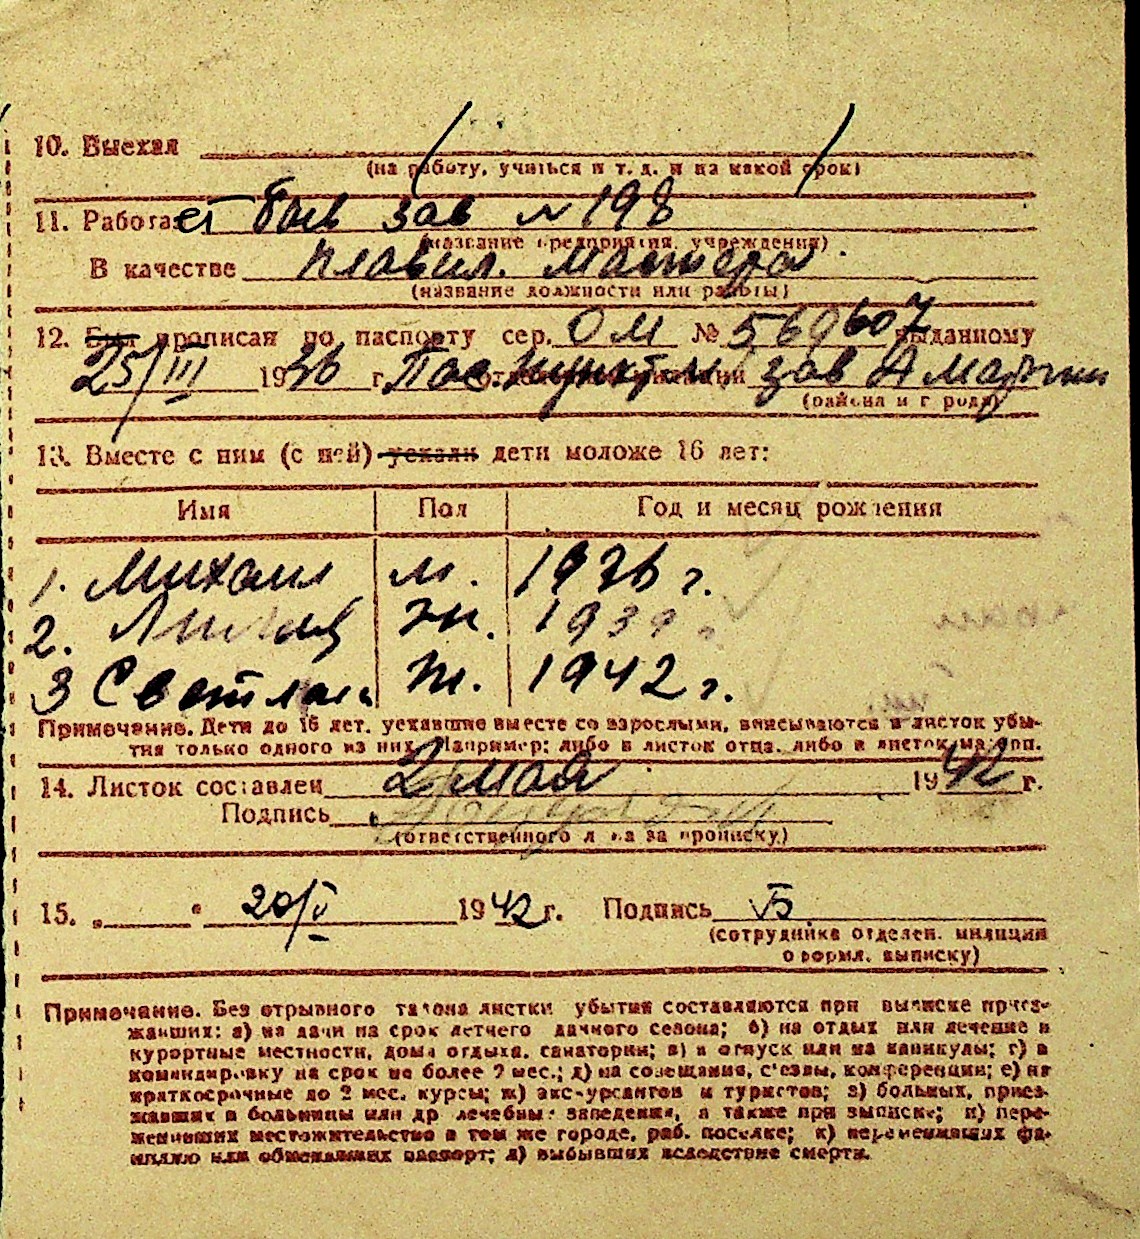 10. Выехал
(на работу, учиться и т. д. и на какой срок)
11. Работает зав № 198
(название предприятия, учреждения)
В качестве плавил. мастера
(название должности или работы)
12. Был прописан по паспорту сер. ОМ № 569607 выданному
25/III 1936 г. Пас пункт. зав
(района и города)
13. Вместе с ним (с ней) уехали дети моложе 16 лет:
Имя Пол Год и месяц рождения
1. Михаил м. 1936 г.
2. ж. 1939 г.
3 Светлана ж. 1942 г.
Примечание. Дети до 16 лет, уехавшие вместе со взрослыми, вписываются в листок убы-
тия только одного из них. Например: либо в листок отца, либо в листок матери.
14. Листок составлен 2 мая 1942 г.
Подпись
(ответственного лица за прописку)
15. „ “ 20/V 1942 г. Подпись
(сотрудника отделен. милиции
оформл. выписку)
Примечание. Без отрывного талона листки убытия составляются при выписке приез-
жавших: а) на дачи на срок летнего дачного сезона; б) на отдых или лечение в
курортные местности, дома отдыха, санатории; в) в отпуск или на каникулы; г) в
командировку на срок не более 2 мес.; д) на совещания, с'езды, конференции; е) на
краткосрочные до 2 мес. курсы; ж) экскурсантов и туристов; з) больных, приез-
жавших в больницы или др лечебные заведения, а также при выписке; и) пере-
менивших местожительство в том же городе, раб. поселке; к) переменивших фа-
милию или обменявших паспорт; л) выбывших вследствие смерти.